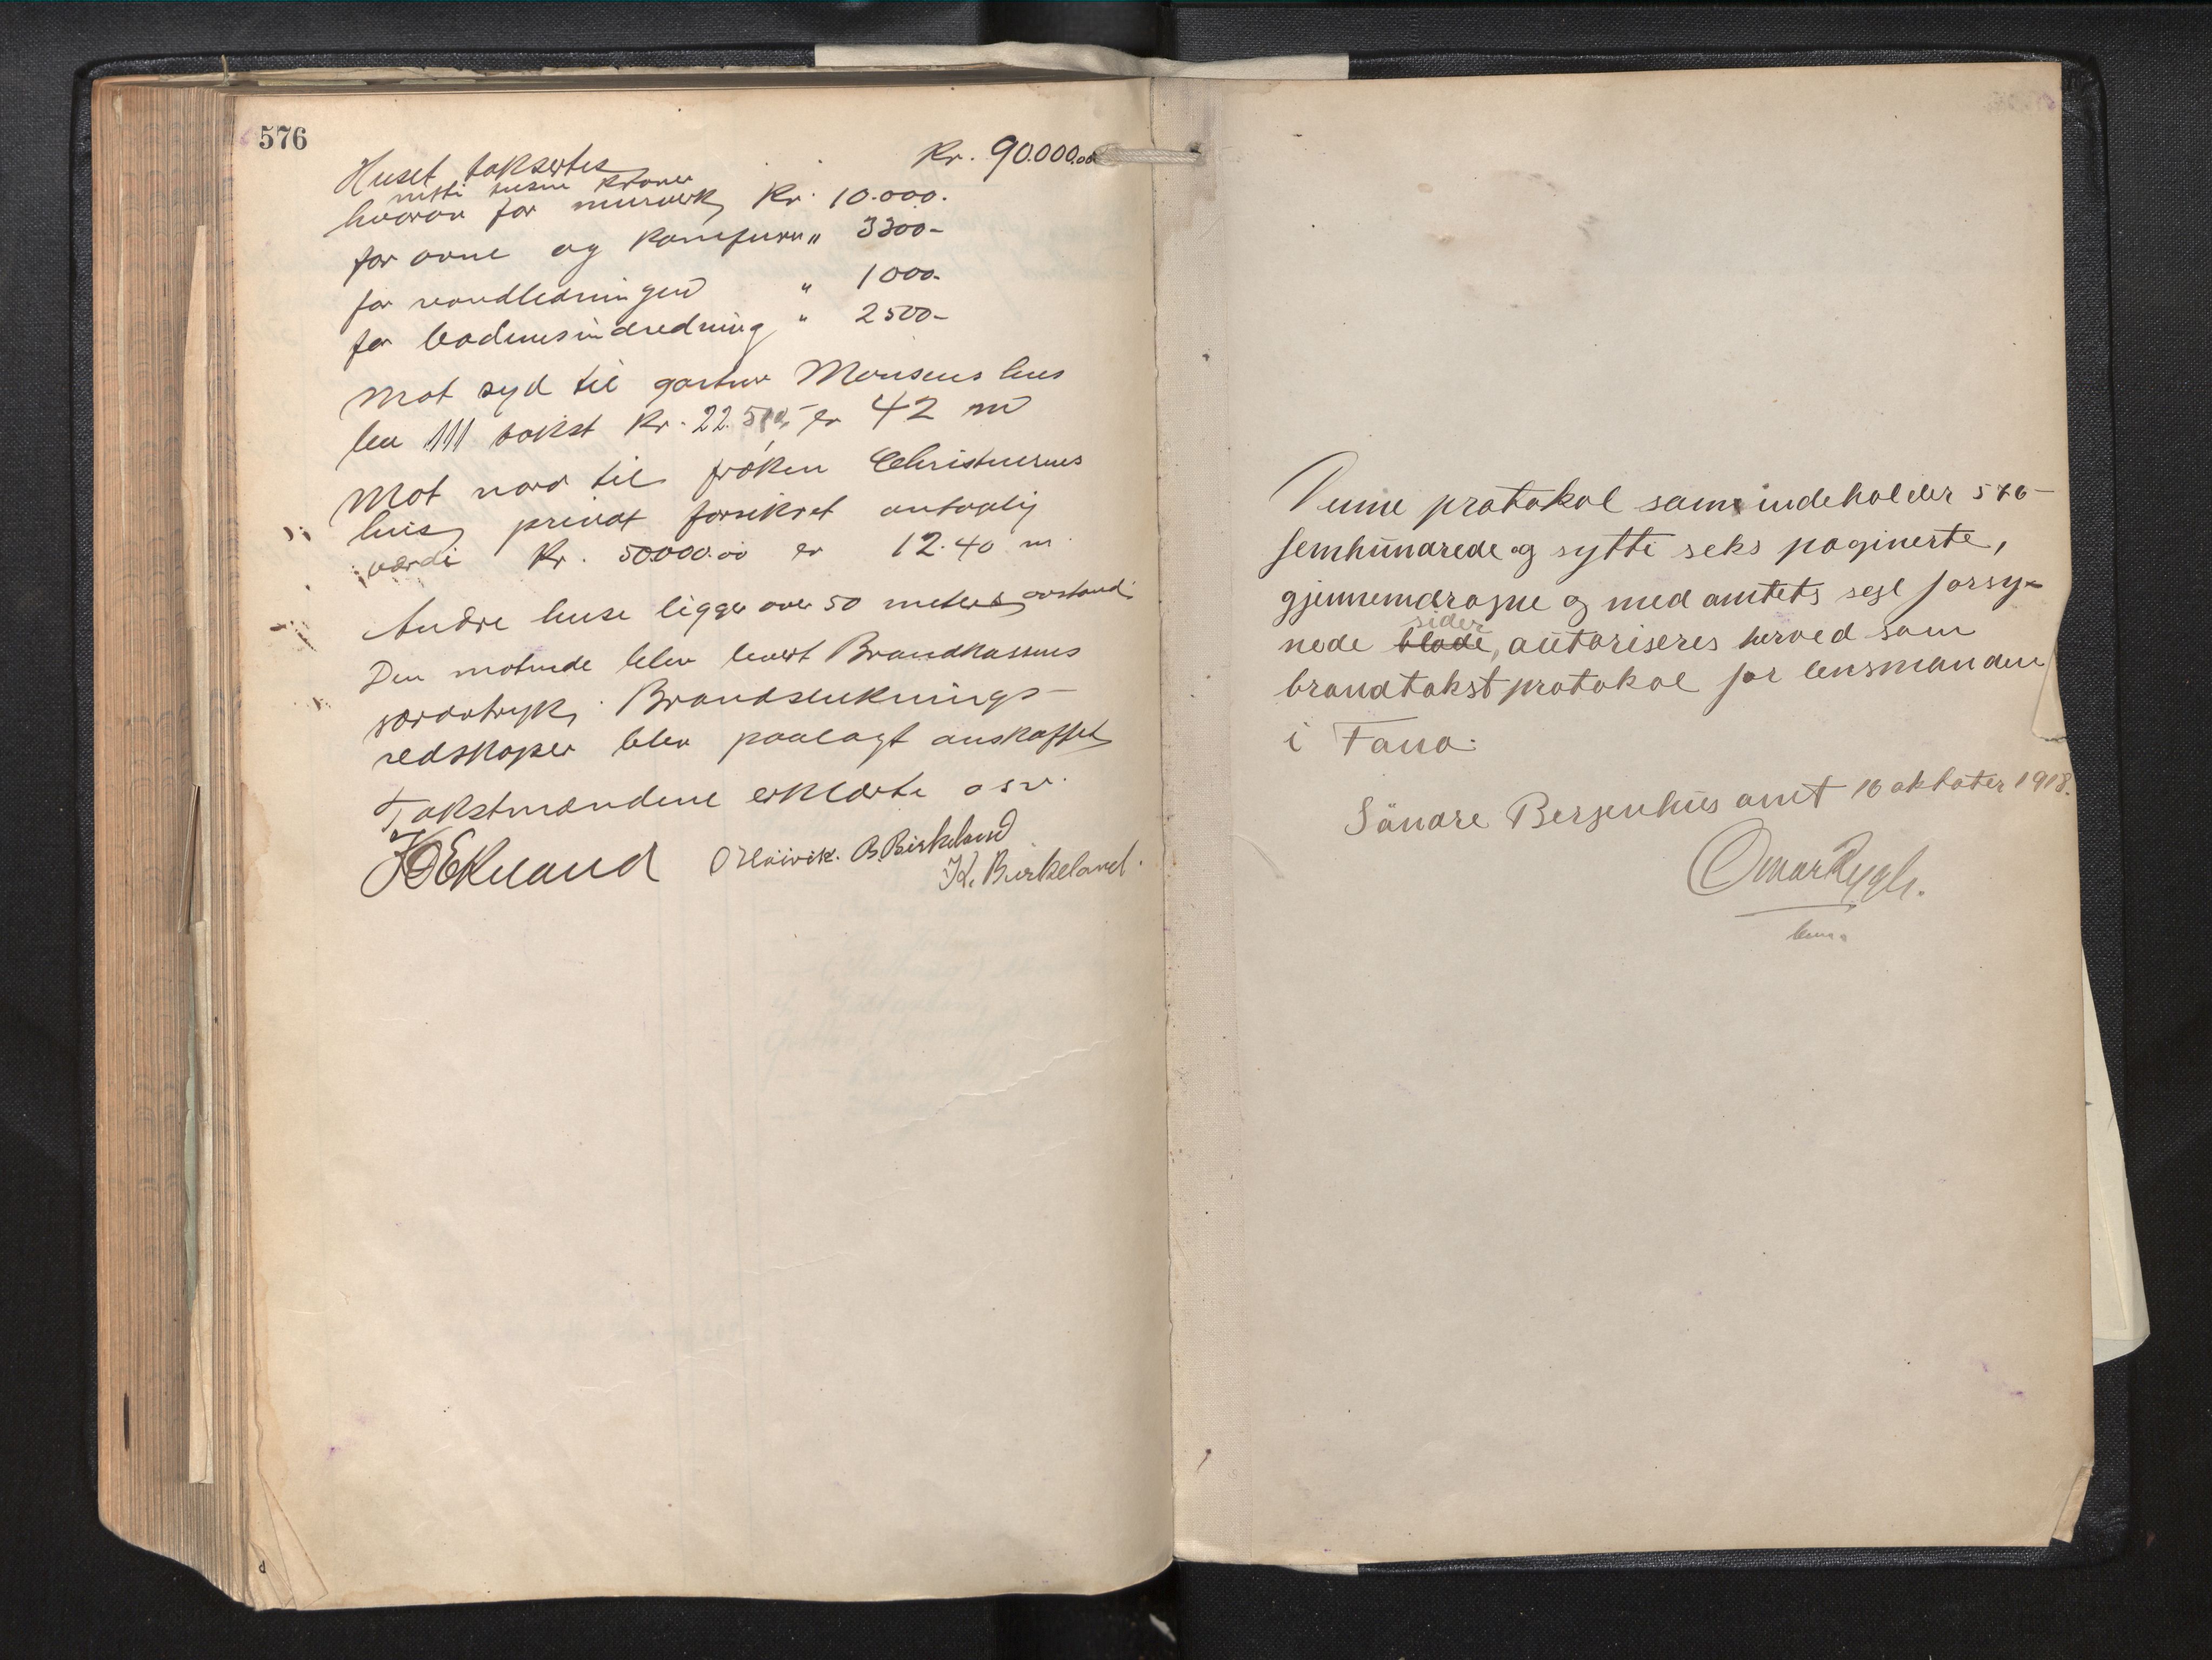 576
Huset taksertes Kr. 90.000.00
nitti tusen kroner
hvorav for murverk Kr. 10.000.
for ovne og komfurer " 3300-
for vandledningen " 1000.
for bodens indredning " 2500-
Mot syd til gartner Monsens hus
lnr 111 takst Kr. 22.500,- er 42 m
Mot nord til frøken Christensens
hus, privat forsikret antagelig
værdi Kr. 50.000.00 er 12.40 m.
Andre huse ligger over 50 meters avstand.
Den møtende blev levert Brandkassens
særavtryk. Brandsluknings-
redskaper blev paalagt anskaffet
Takstmændene erklærte osv.
Ekeland O Høivik. B. Birkeland
K. Birkeland.
Denne protokol som indeholder 576-
femhundrede og sytti seks paginerte,
gjennemdragne og med amtets segl forsy-
sider
nede blade, autoriseres herved som
brandtakstprotokol for lensmanden
i Fana.
Söndre Bergenhus amt 16 oktober 1918.
Omar Rygh.